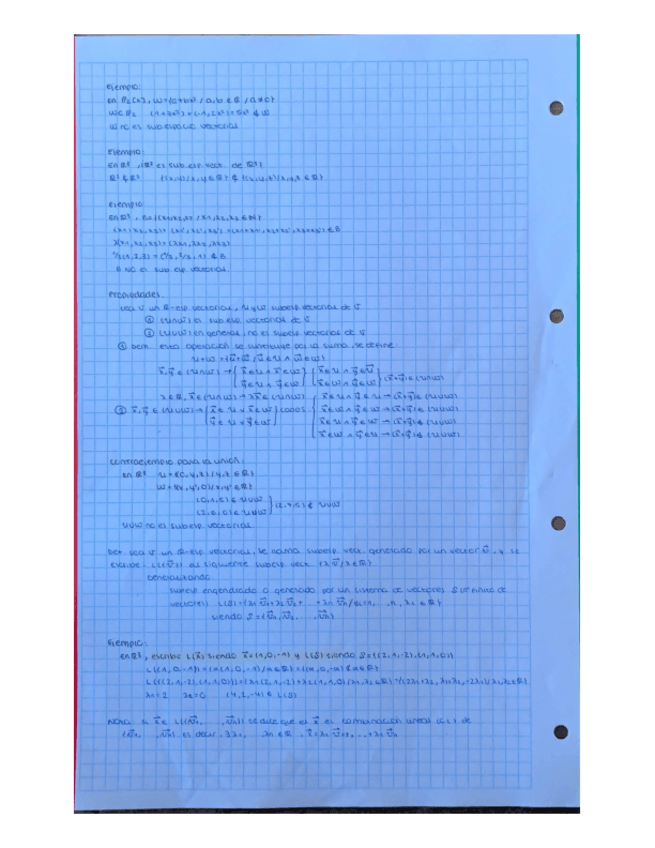 Ejemplo:
En P₂[x], W={a+bx² / a,b ∈ ℝ / a≠0}
W⊂P₂ (1+3x²)+(-1,2x²)=5x² ∉ W
W no es subespacio vectorial
Ejemplo:
En ℝ³, ¿ℝ² es sub.esp.vect. de ℝ³?
ℝ² ⊄ ℝ³ {(x,y)/x,y ∈ ℝ} ⊄ {(x,y,z)/x,y,z ∈ ℝ}
Ejemplo
En ℝ³, B={(x₁,x₂,x₃) / x₁,x₂,x₃ ∈ N}
(x₁,x₂,x₃)+(x₁',x₂',x₃')=(x₁+x₁',x₂+x₂',x₃+x₃') ∈ B
λ(x₁,x₂,x₃)=(λx₁,λx₂,λx₃)
½(1,2,3)=(½,2/2,) ∉ B
B NO es sub.esp. vectorial.
Propiedades.
Sea V un ℝ-esp vectorial, U y W subesp. vectorial de V
① (U∩W) es sub esp. vectorial de V
② (U∪W) en general, no es subesp. vectorial de V
① Dem. esta operación se sustituye por la suma, se define:
U+W={u⃗+w⃗ / u⃗ ∈ U ∧ w⃗ ∈ W}
x⃗,y⃗ ∈ (U∩W) → { x⃗∈U ∧ x⃗∈W } { x⃗∈U ∧ y⃗∈U } (x⃗+y⃗) ∈ (U∩W)
y⃗∈U ∧ y⃗∈W x⃗∈W ∧ y⃗∈W
λ∈ℝ, x⃗∈(U∩W) → λx⃗ ∈ (U∩W)
② x⃗,y⃗ ∈ (U∪W) → { x⃗∈U ∨ x⃗∈W } casos { x⃗∈U ∧ y⃗∈U → (x⃗+y⃗) ∈ (U∪W)
y⃗∈U ∨ y⃗∈W x⃗∈W ∧ y⃗∈W → (x⃗+y⃗) ∈ (U∪W)
x⃗∈U ∧ y⃗∈W → (x⃗+y⃗) ∉ (U∪W)
x⃗∈W ∧ y⃗∈U → (x⃗+y⃗) ∉ (U∪W)
Contraejemplo para la unión:
En ℝ³ U={(0,y,z)/y,z ∈ ℝ}
W={(x,y,0)/x,y ∈ ℝ}
(0,1,5) ∈ U∪W
(2,0,0) ∈ U∪W } (2,1,5) ∉ U∪W
U∪W no es subesp. vectorial.
Def. Sea V un ℝ-esp vectorial, se llama subesp. vect. generado por un vector v⃗, y se
escribe L(v⃗) al siguiente subesp. vect. {λv⃗/λ∈ℝ}
Generalizando
Subesp engendrado o generado por un sistema de vectores S
vectores) L(S)={λ₁v⃗₁+λ₂v⃗₂+ +λₙv⃗ₙ / ,n, λᵢ∈ℝ}
siendo S={v⃗₁,v⃗₂, ,v⃗ₙ}
Ejemplo:
En ℝ³, escribe L(x⃗) siendo x⃗=(1,0,-1) y L(S) siendo S={(2,1,-2),(1,1,0)}
L((1,0,-1))={α(1,0,-1)/α∈ℝ}={(α,0,-α)/α∈ℝ}
L({(2,1,-2),(1,1,0)})={λ₁(2,1,-2)+λ₂(1,1,0)/λ₁,λ₂∈ℝ}={(2λ₁+λ₂,λ₁+λ₂,-2λ₁)/λ₁,λ₂∈ℝ}
λ₁=2 λ₂=0 (4,2,-4) ∈ L(S)
Nota. Si x⃗∈ L({v⃗₁, ,v⃗ₙ}) se dice que el x⃗ es combinación lineal (c.l.) de
{v⃗₁, ,v⃗ₙ} es decir, ∃λ₁, λₙ∈ℝ, x⃗=λ₁v⃗₁+...+λₙv⃗ₙ